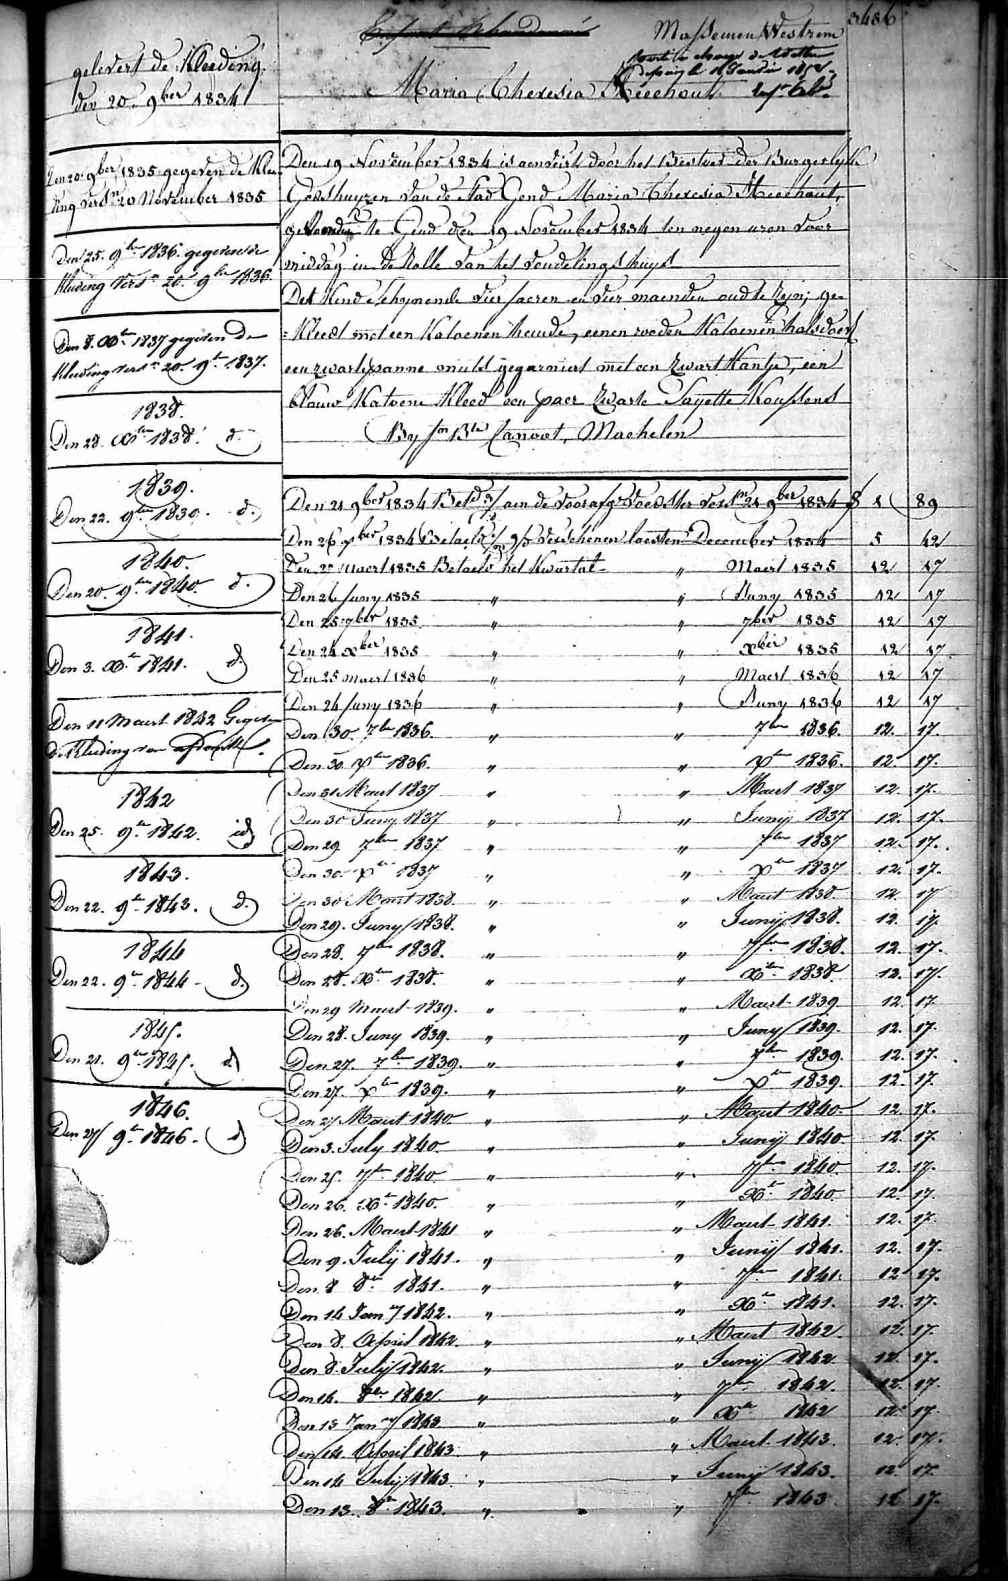 3486
Enfant Abandonné
Massemen Westrem
Maria Theresia Meeehout
gelevert de Kleeding
den 20. 9ber 1834
Den 20: 9ber 1835 gegeven de Klee-
ding versn 20 November 1835
Den 25. 9br 1836. gegeven de
kleding versn 20. 9br 1836.
Den 8. Xbr 1837 gegeven de
kleding versn 20. 9br 1837.
1838.
Den 28. Xber 1838. d.
1839.
Den 22. 9br 1839. d.
1840.
Den 20. 9br 1840. d.
1841.
Den 3. Xbr 1841. d.
Den 11 Maert 1842 Gegeven
de Kleding van
1842
Den 25. 9br 1842. id
1843.
Den 22. 9br 1843. d.
1844
Den 22. 9br 1844 - d.
1845.
Den 21. 9br 1845. d
1846.
Den 27 9br 1846. d
Den 19 November 1834 is aenveird door het Bestuer der Burgerlyke
Godshuyzen van de Stad Gend Maria Theresia
gevonden te Gend den 19 November 1834 ten negen uren voor
middag in de Rolle van het vondelingshuys
Det Kend schynende vier jaeren en vier maenden oud te zyn; ge-
=kleed met een Katoenen hemde, eenen rooden Katoenen halsdoek
een zwarte panne muts gegarniert met een zwart Kantje, een
blauw Katoene Kleed een paer zwarte Sajette Koussens
By Jn Bte Canoot, Machelen
Den 21 9ber 1834 Betd aen de voorafg. Voedster versn 21 9ber 1834 f 1 89
Den 26 Xber 1834 Betaeld verschenen laesten December 1834 5 42
Den 20 Maert 1835 Betaeld het Kwartal " Maert 1835 12 17
Den 26 Juny 1835 " " Juny 1835 12 17
Den 25 7ber 1835 " " 7ber 1835 12 17
Den 24 Xber 1835 " " Xber 1835 12 17
Den 25 maert 1836 " " Maert 1836 12 17
Den 24 Juny 1836 " " Juny 1836 12 17
Den 30. 7br 1836. " " 7br 1836. 12. 17.
Den 30 Xbr 1836. " " Xbr 1836. 12. 17.
Den 31 Maert 1837 " " Maert 1837 12. 17.
Den 30 Juny 1837 " " Junij 1837 12. 17.
Den 29 7br 1837 " " 7br 1837 12. 17.
Den 30 Xbr 1837 " " Xbr 1837 12. 17.
Den 30 Maert 1838. " " Maert 1838. 12. 17
Den 29. Juny 1838. " " Junij 1838. 12. 17.
Den 28. 7br 1838. " " 7br 1838. 12. 17.
Den 28. Xbr 1838. " " Xbr 1838 12. 17.
Den 29 Maert 1839. " " Maert 1839. 12. 17
Den 28. Juny 1839. " " Juny 1839. 12. 17.
Den 27. 7br 1839. " " 7br 1839. 12. 17.
Den 27. Xbr 1839. " " Xbr 1839. 12. 17.
Den 27 Maert 1840. " " Maert 1840. 12. 17.
Den 3. July 1840. " " Junij 1840 12. 17.
Den 25. 7br 1840. " " 7br 1840. 12. 17.
Den 26. Xbr 1840. " " Xbr 1840. 12. 17.
Den 26. Maert 1841 " " Maert 1841. 12. 17.
Den 9. Julij 1841. " " Junij 1841. 12. 17.
Den 8 8br 1841. " " 7br 1841. 12 17.
Den 14 Jany 1842. " " Xbr 1841. 12. 17.
Den 8. April 1842. " " Maert 1842. 12. 17.
Den 8. Julij 1842. " " Junij 1842. 12. 17.
Den 14. 8br 1842. " " 7br 1842. 12. 17.
Den 13 Jany 1843 " " Xbr 1842 12. 17.
Den 14. April 1843. " " Maert 1843. 12. 17.
Den 14 Julij 1843. " " Junij 1843. 12. 17.
Den 13. 8br 1843. " " 7br 1843 12 17.